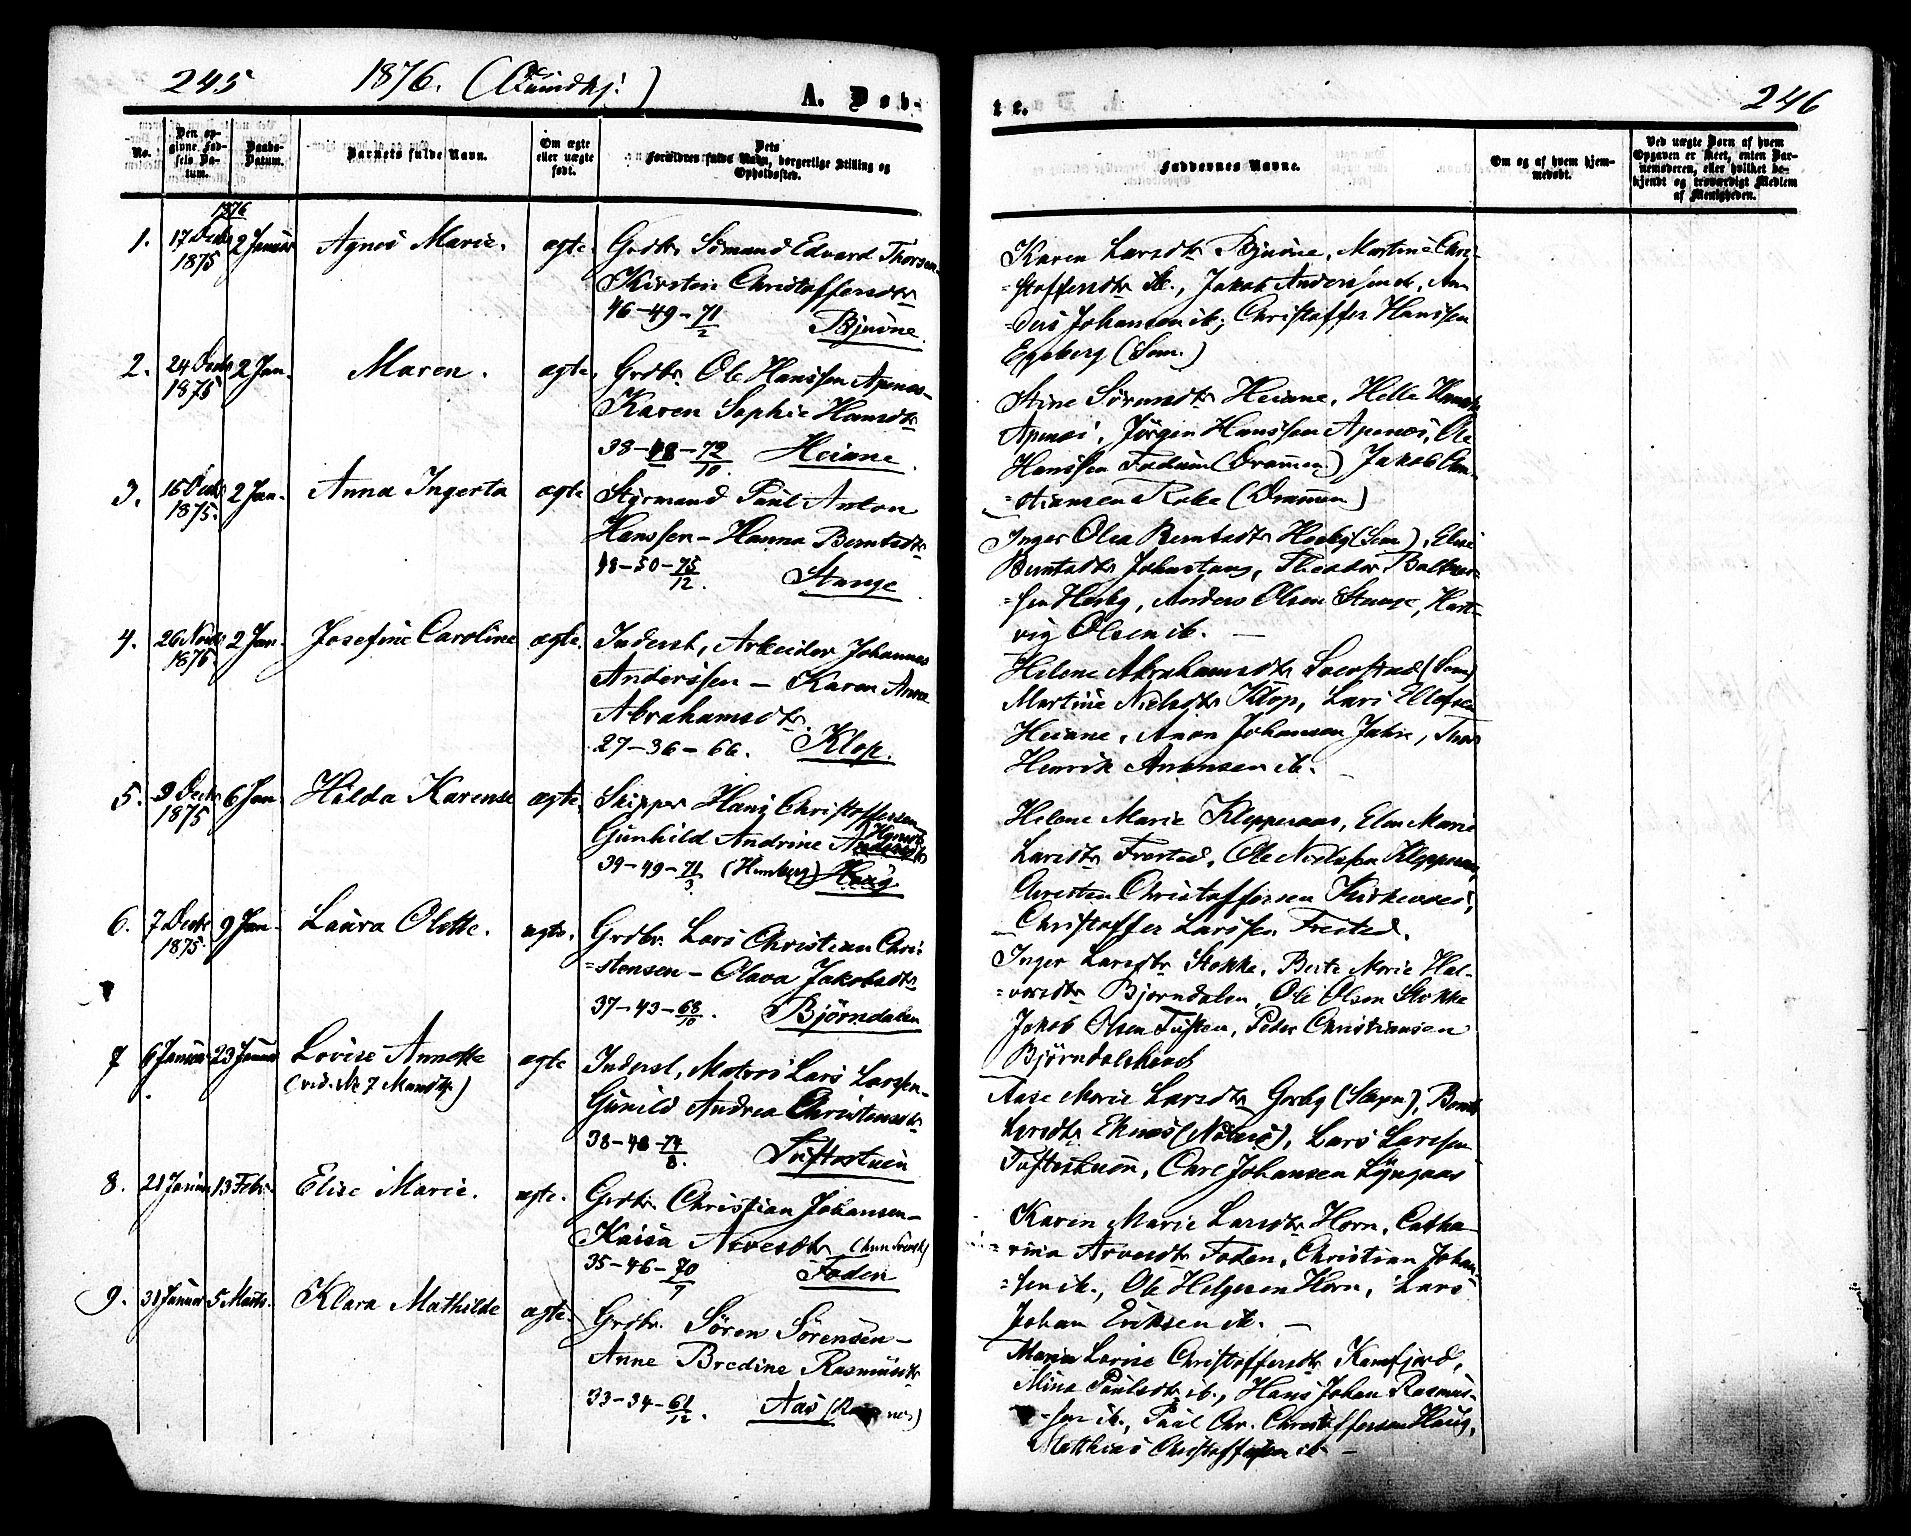 245 1876. 246
A. Døb- te.
No.
Den op-
givne Fød-
sels Da-
tum.
Daabs-
Datum.
Barnets fulde Navn.
Om ægte
eller uægte
født.
Dets
Forældres fulde Navn, borgerlige Stilling og
Opholdssted.
Faddernes Navne.
Om og af hvem hjem-
medøbt.
Ved uægte Børn af hvem
Opgaven er skeet, enten Bar-
nemoderen, eller hvilket be-
kjendt og troværdigt Medlem
af Menigheden.
1876
1. 17 Decbr 1875 2 Januar Agnes Marie. ægte.
Grdbr. Sømand Edvard Thorsen-
Kirstine Christoffersdtr
46-49-71/2 Bjuøne.
Karen Larsdtr Bjuøne, Martine Chri-
=stoffersdtr ib., Jakob Anderssen ib., An
=ders Johansen ib., Christoffer Hanssen
(Sem.)
2. 24 Decbr 1875 2 Jan. Maren. ægte.
Grdbr. Ole Hanssen Apenæs-
Karen Sophie Hansdtr
38-48-72/10. Heiane.
Stine Sørensdtr Heiane, Helle Hansdtr
Apenæs, Jørgen Hanssen Apenæs, Ole
Hanssen Fadum (Drammen) Jakob
(Drammen)
3. 16 Decbr 1875. 2 Jan. Anna Ingerta ægte
Styrmand Paul Anton
Hanssen - Hanna Berntsdtr
48-50-75/12. Stange
Inger Olea Berntsdtr Hesby (Sem), Elise
Berntsdtr Johnstang, Theodor Baltser-
=sen Hesby, Anders Olsen Stange, Hart-
vig Olsen ib. -
4. 26 Novbr 1876. 2 Jan. Josefine Caroline ægte.
Inderst, Arbeider Johannes
Anderssen - Karen Anna
Abrahamsdtr.
27-36-66. Klop.
Helene Abrahamsdtr (Sem)
Martine Nielsdtr Klop, Lars Ellefsen
Heiane, Anon Johansen Jahre, Thor
Henrik Anonsen ib. -
5. 9 Decbr 1875 6 Jan. Hilda Karense ægte.
Skipper Hans Christoffersen
Gunhild Andrine Hansdtr
39-49-71/3 Haug
Helene Marie Klopperaas, Elen Marie
Larsdtr Frested, Ole Nielsen Klopperaas,
Christen Christoffersen Kirkevoes,
Christoffer Larssen Frested.
6. 7 Decbr 1875. 9 Jan. Laura Olette. ægte.
Grdbr. Lars Christian Chri-
=stensen - Olava Jakobsdtr
37-43-68/10. Bjørndalen
Inger Larsdtr Stokke, Berte Marie Hal-
=vorsdtr Bjørndalen, Ole Olsen Stokke
Jakob Olsen Tuften, Peder Christiansen
7 6 Januar 23 Januar Lovise Annette ægte
(vid. No 7 Mandkj.)
Inderst, Matros Lars Larssen-
Gunild Andrea Christensdtr
38-48-74/8. Tuftestuen
Aase Marie Larsdtr Gorby (Slagn), Bernt
Larsdtr Eknæs (Nøterø), Lars Larssen
Tuftestuen, Carl Johansen Lyngaas
8. 21 Januar 13 Febr. Elise Marie. ægte.
Grdbr. Christian Johansen-
Kaisa Arvesdtr (hun Svensk)
35-46-70/9 Foden
Karen Marie Larsdtr Horn, Catha-
=rina Arvesdtr Foden, Christian Johan-
=sen ib., Ole Helgesen Horn, Lars
Johan Eriksen ib. -
9. 31 Januar 5 Marts. Klara Mathilde ægte.
Grdbr. Søren Sørensen-
Anne Bredine Rasmusdtr
33-34-61/12. Aas
Maren Lovise Christoffersdtr Kamfjord,
Mina Paulsdtr ib., Hans Johan Rasmus-
=sen ib., Paul Chr. Christoffersen Haug,
Matthias Christoffersen ib. -